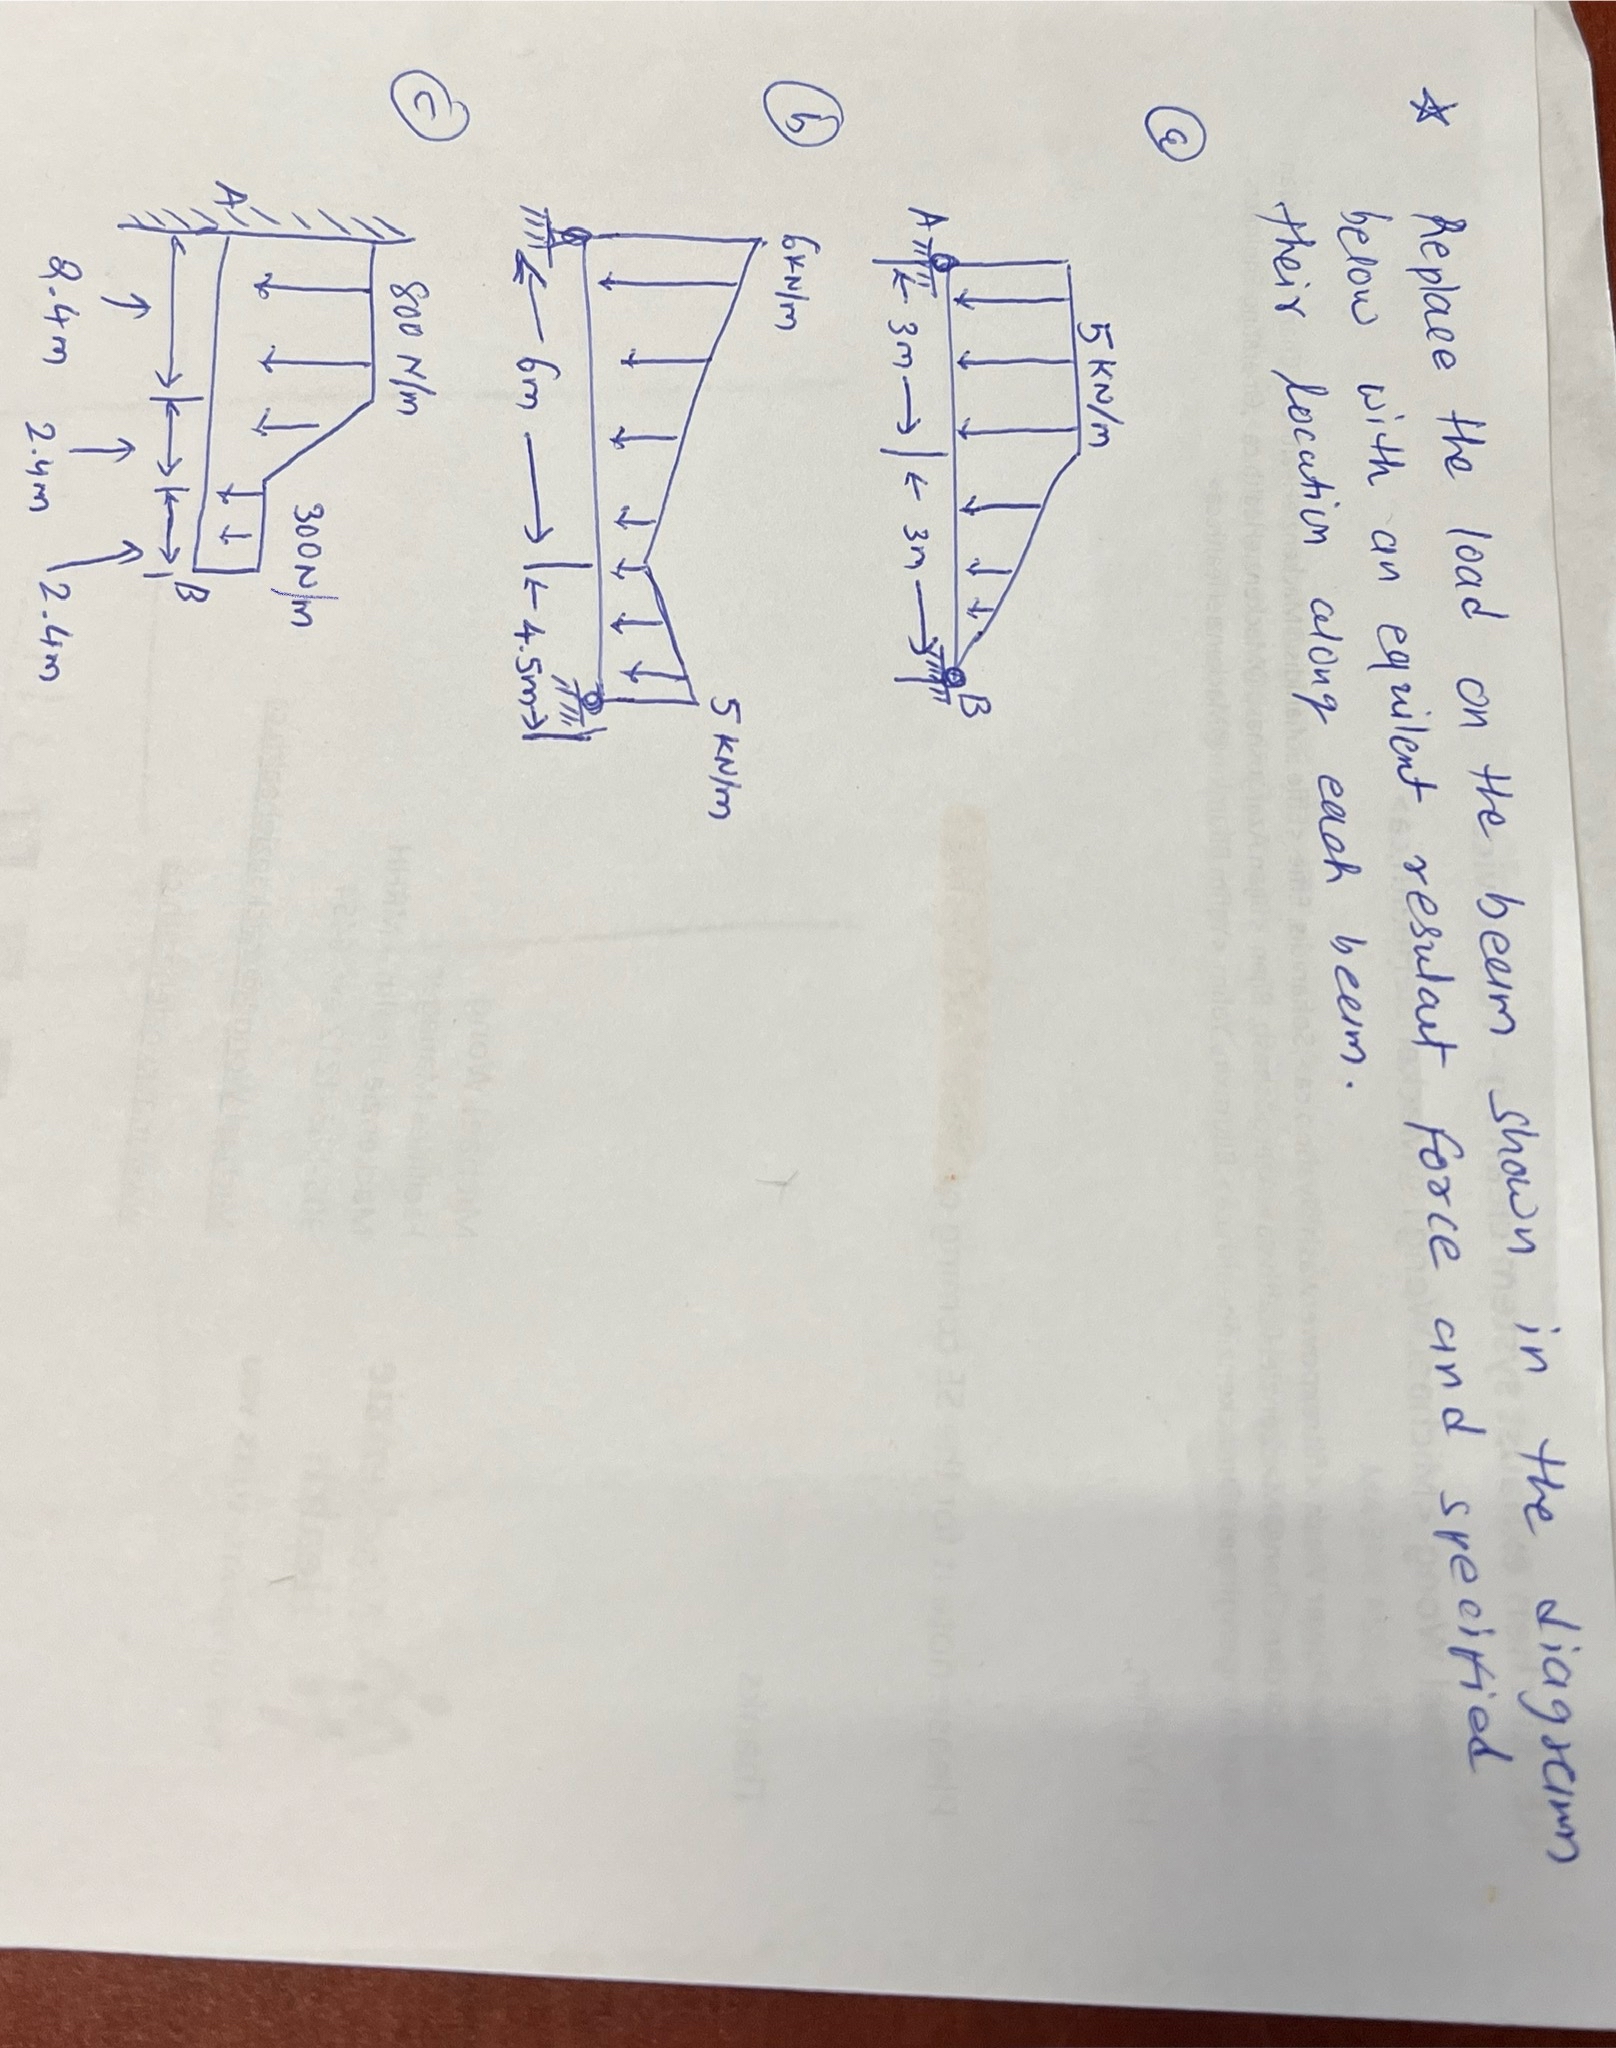 ☆ Replace the load on the beam shown in the diagram
below with an equilent resulant force and specified
their location along each beem.
(a)
5 KN/m
A
B
← 3m → | ← 3m →
(b)
6 KN/m
5 KN/m
← 6m → | ← 4.5m →
(c)
800 N/m
300 N/m
A
B
2.4m
2.4m